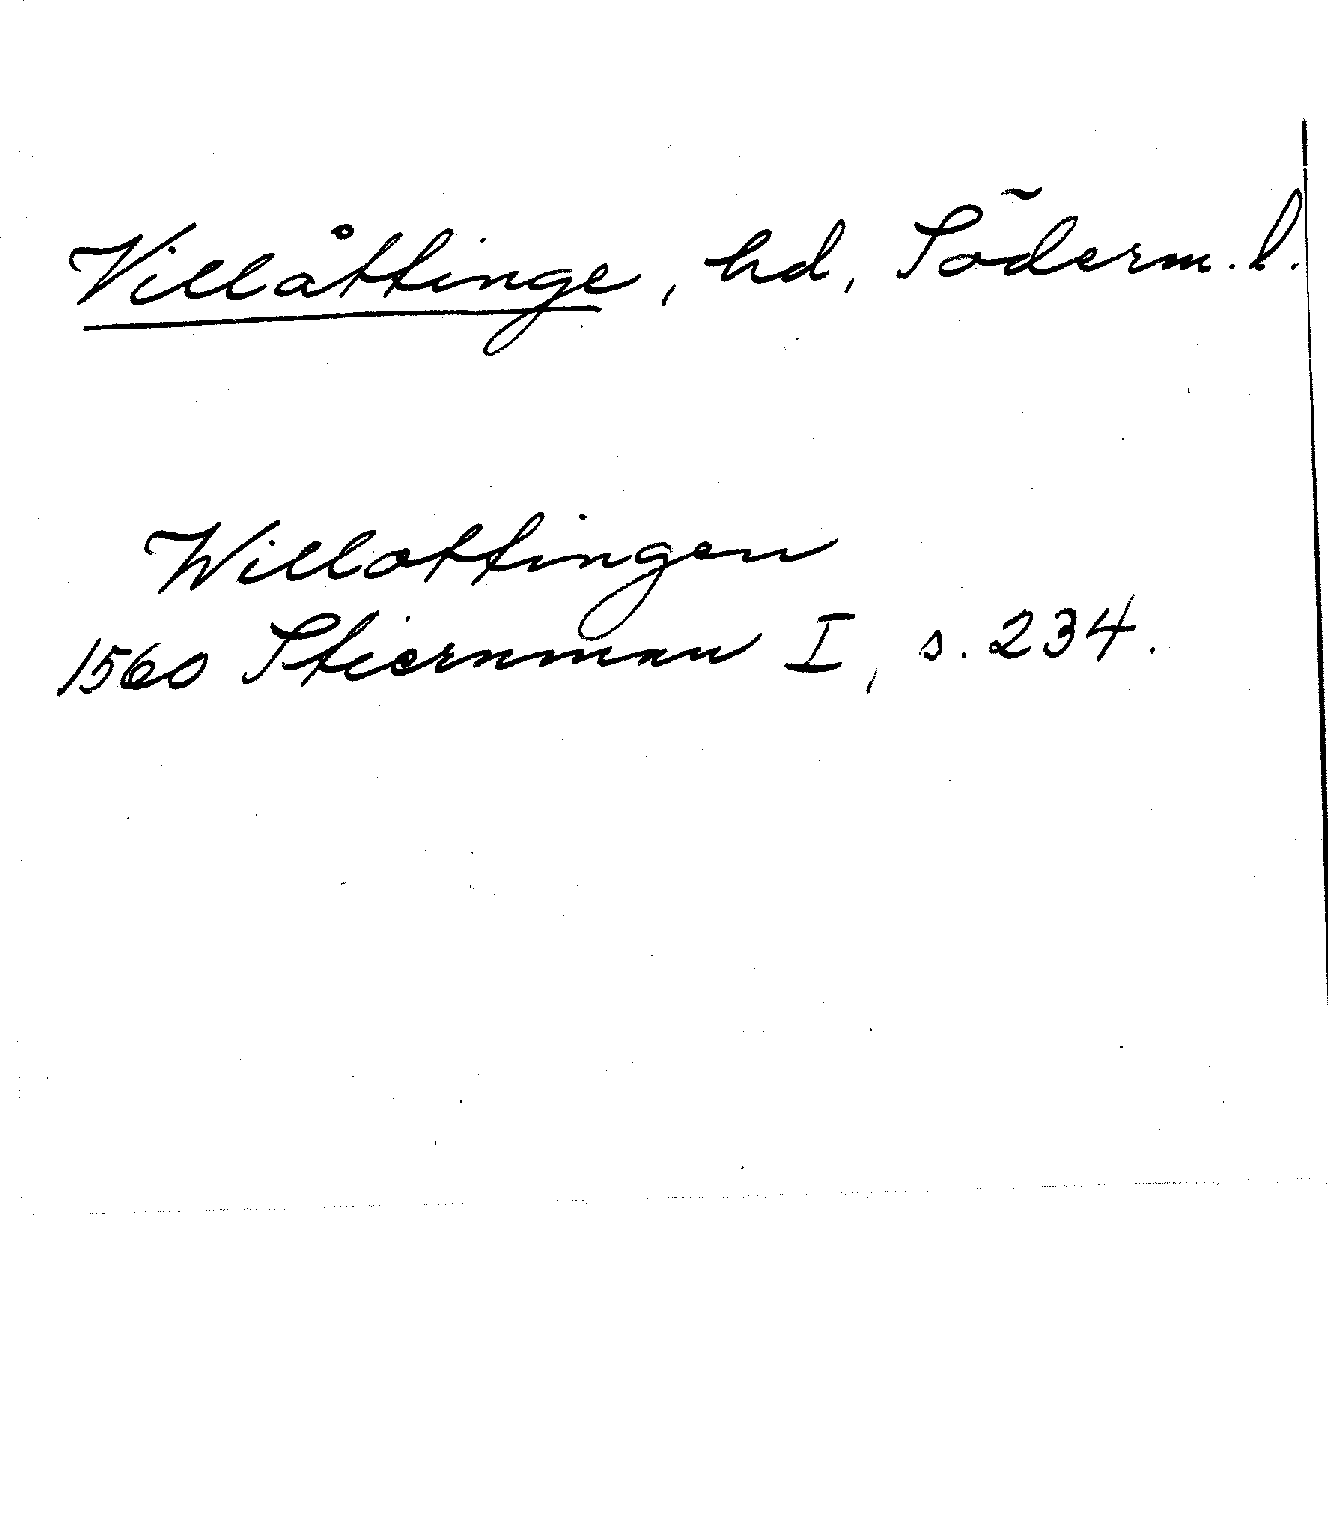 Villåttinge, hd, Söderm. l.
Willottingen
1560 Stiernman I, s. 234.